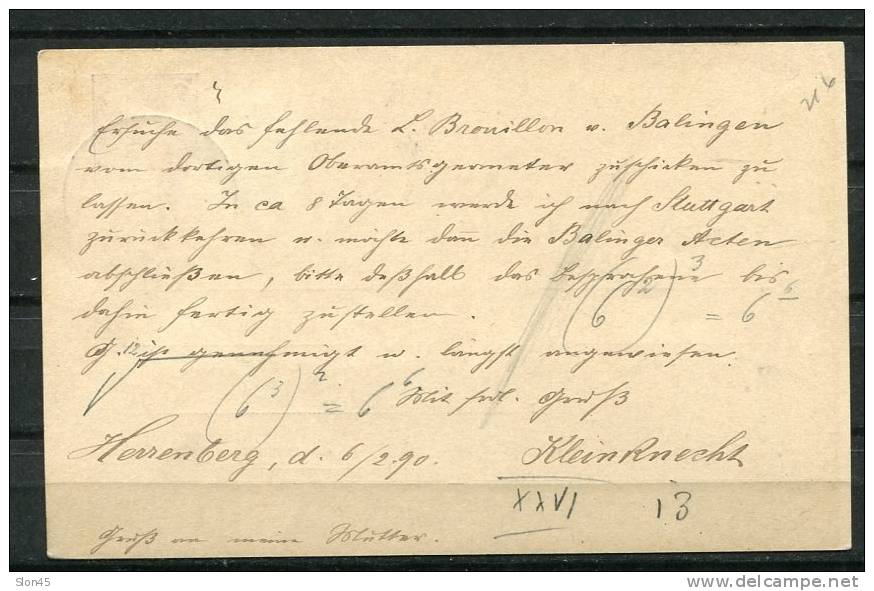 216
Ersuche das fehlende L. Brouillon v. Balingen
vom dortigen Oberamtsgeometer zuschicken zu
lassen. In ca 8 Tagen werde ich nach Stuttgart
zurückkehren u. möchte dann die Balinger Acten
abschließen, bitte deßhalb das besprochene bis
dahin fertig zustellen.
(6²)³ = 6⁶
G. 12 ist genehmigt u. längst angewiesen.
(6³)² = 6⁶
Mit frdl. Gruß
Herrenberg, d. 6/2.90. Kleinknecht
XXVI 13
Gruß an meine Mutter.
Slon45
delcampe.net